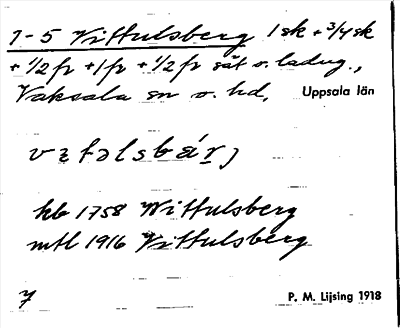 1-5 Vittulsberg 1 sk + 3/4 sk
+ 1/2 fr + 1 fr + 1/2 fr sät o. ladug.,
Vaksala sn o. hd, Uppsala län
kb 1758 Wittulsberg
mtl 1916 Vittulsberg
7 P. M. Lijsing 1918